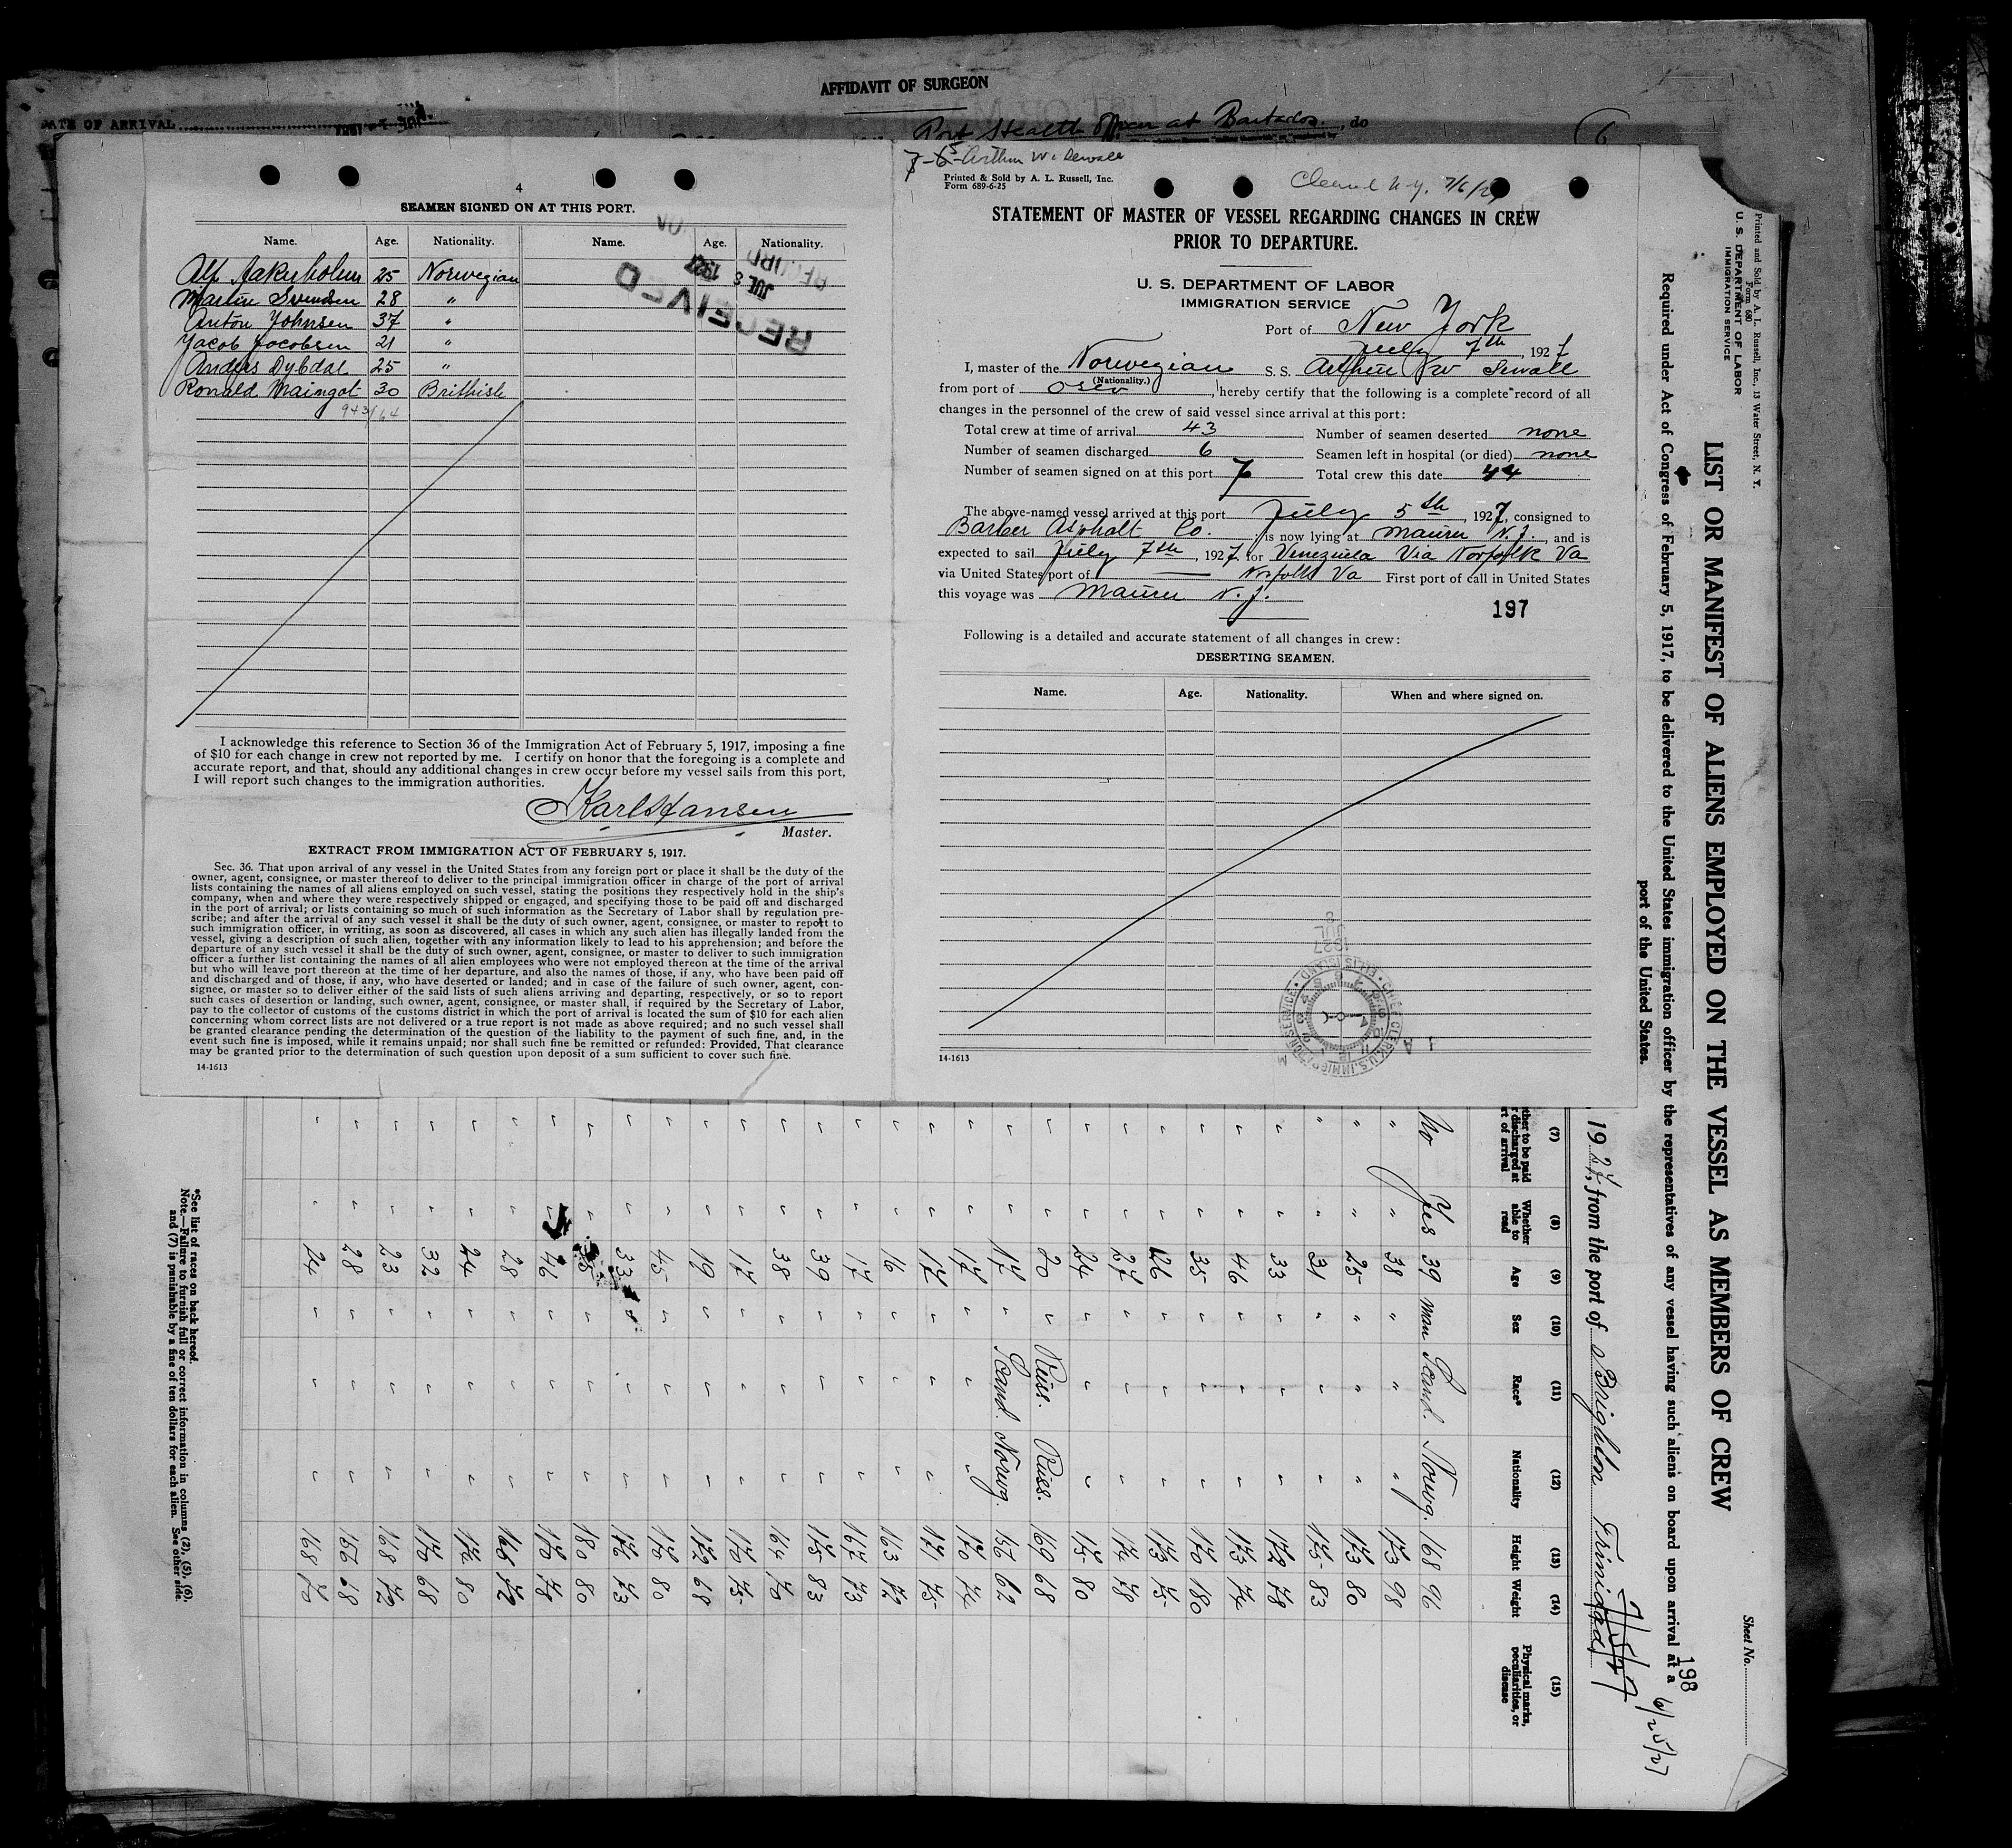 AFFIDAVIT OF SURGEON
DATE OF ARRIVAL
Port Health Officer at Barbados, do
4
SEAMEN SIGNED ON AT THIS PORT.
Name. Age. Nationality. Name. Age. Nationality.
Alf 25 Norwegian
Martin Svendsen 28 "
Anton Johnsen 37 "
Jacob Jacobsen 21 "
Anders Dybdal 25 "
Ronald Maingot 30 Brithish
943/64
RECEIVED
JUL 8 1927
RECORD
I acknowledge this reference to Section 36 of the Immigration Act of February 5, 1917, imposing a fine
of $10 for each change in crew not reported by me. I certify on honor that the foregoing is a complete and
accurate report, and that, should any additional changes in crew occur before my vessel sails from this port,
I will report such changes to the immigration authorities.
Karl Hansen
Master.
EXTRACT FROM IMMIGRATION ACT OF FEBRUARY 5, 1917.
Sec. 36. That upon arrival of any vessel in the United States from any foreign port or place it shall be the duty of the
owner, agent, consignee, or master thereof to deliver to the principal immigration officer in charge of the port of arrival
lists containing the names of all aliens employed on such vessel, stating the positions they respectively hold in the ship's
company, when and where they were respectively shipped or engaged, and specifying those to be paid off and discharged
in the port of arrival; or lists containing so much of such information as the Secretary of Labor shall by regulation pre-
scribe; and after the arrival of any such vessel it shall be the duty of such owner, agent, consignee, or master to report to
such immigration officer, in writing, as soon as discovered, all cases in which any such alien has illegally landed from the
vessel, giving a description of such alien, together with any information likely to lead to his apprehension; and before the
departure of any such vessel it shall be the duty of such owner, agent, consignee, or master to deliver to such immigration
officer a further list containing the names of all alien employees who were not employed thereon at the time of the arrival
but who will leave port thereon at the time of her departure, and also the names of those, if any, who have been paid off
and discharged and of those, if any, who have deserted or landed; and in case of the failure of such owner, agent, con-
signee, or master so to deliver either of the said lists of such aliens arriving and departing, respectively, or so to report
such cases of desertion or landing, such owner, agent, consignee, or master shall, if required by the Secretary of Labor,
pay to the collector of customs of the customs district in which the port of arrival is located the sum of $10 for each alien
concerning whom correct lists are not delivered or a true report is not made as above required; and no such vessel shall
be granted clearance pending the determination of the question of the liability to the payment of such fine, and, in the
event such fine is imposed, while it remains unpaid; nor shall such fine be remitted or refunded: Provided, That clearance
may be granted prior to the determination of such question upon deposit of a sum sufficient to cover such fine.
14-1613
7-5- Arthur W. Sewall
Printed & Sold by A. L. Russell, Inc.
Form 689-6-25
Cleared N.Y. 7/6/27
STATEMENT OF MASTER OF VESSEL REGARDING CHANGES IN CREW
PRIOR TO DEPARTURE.
U. S. DEPARTMENT OF LABOR
IMMIGRATION SERVICE
Port of New York
July 7th, 1927
I, master of the Norwegian S. S. Arthur W Sewall
(Nationality.)
from port of Oslo, hereby certify that the following is a complete record of all
changes in the personnel of the crew of said vessel since arrival at this port:
Total crew at time of arrival 43 Number of seamen deserted none
Number of seamen discharged 6 Seamen left in hospital (or died) none
Number of seamen signed on at this port 7 Total crew this date 44
The above-named vessel arrived at this port July 5th, 1927, consigned to
Barber Asphalt Co. is now lying at Maurer N.J., and is
expected to sail July 7th, 1927. for Venezuela Via Norfolk Va
via United States port of Norfolk Va First port of call in United States
this voyage was Maurer N.J.
197
Following is a detailed and accurate statement of all changes in crew:
DESERTING SEAMEN.
Name. Age. Nationality. When and where signed on.
JUL 1927
CHIEF CLERK, U.S. IMMIGRATION SERVICE · ELLIS ISLAND
14-1613
Printed and Sold by A. L. Russell, Inc., 13 Water Street, N. Y.
Form 680
U. S. DEPARTMENT OF LABOR
IMMIGRATION SERVICE
Sheet No.
LIST OR MANIFEST OF ALIENS EMPLOYED ON THE VESSEL AS MEMBERS OF CREW
198
6/25/27
Required under Act of Congress of February 5, 1917, to be delivered to the United States immigration officer by the representatives of any vessel having such aliens on board upon arrival at a
port of the United States.
7/5/27
1927, from the port of Brighton Trinidad
(7) (8) (9) (10) (11) (12) (13) (14) (15)
Whether able to read
Age Sex Race* Nationality Height Weight
Physical marks, peculiarities, or disease
No Yes 39 man Scand. Norwg. 168 96
" " 38 " " " 173 98
" " 25 " " " 173 80
" " 31 " " " 175 83
" " 33 " " " 172 78
" " 46 " " " 173 74
" " 35 " " " 170 180
" " 26 " " " 173 75
" " 27 " " " 174 78
" " 24 " " " 175 80
" " 20 " Russ. Russ. 169 68
" " 17 " Scand. Norwg. 156 62
" " 17 " " " 170 74
" " 17 " " " 171 75
" " 16 " " " 163 72
" " 17 " " " 167 73
" " 39 " " " 175 83
" " 38 " " " 164 70
" " 17 " " " 170 75
" " 19 " " " 172 68
" " 45 " " " 170 80
" " 33 " " " 176 73
" " " " " 180 80
" " 46 " " " 170 78
" " 28 " " " 166 72
" " 24 " " " 172 80
" " 32 " " " 170 68
" " 23 " " " 168 72
" " 28 " " " 156 68
" " 24 " " " 168 70
*See list of races on back hereof.
Note.—Failure to furnish full or correct information in columns (2), (5), (6),
and (7) is punishable by a fine of ten dollars for each alien. See other side.